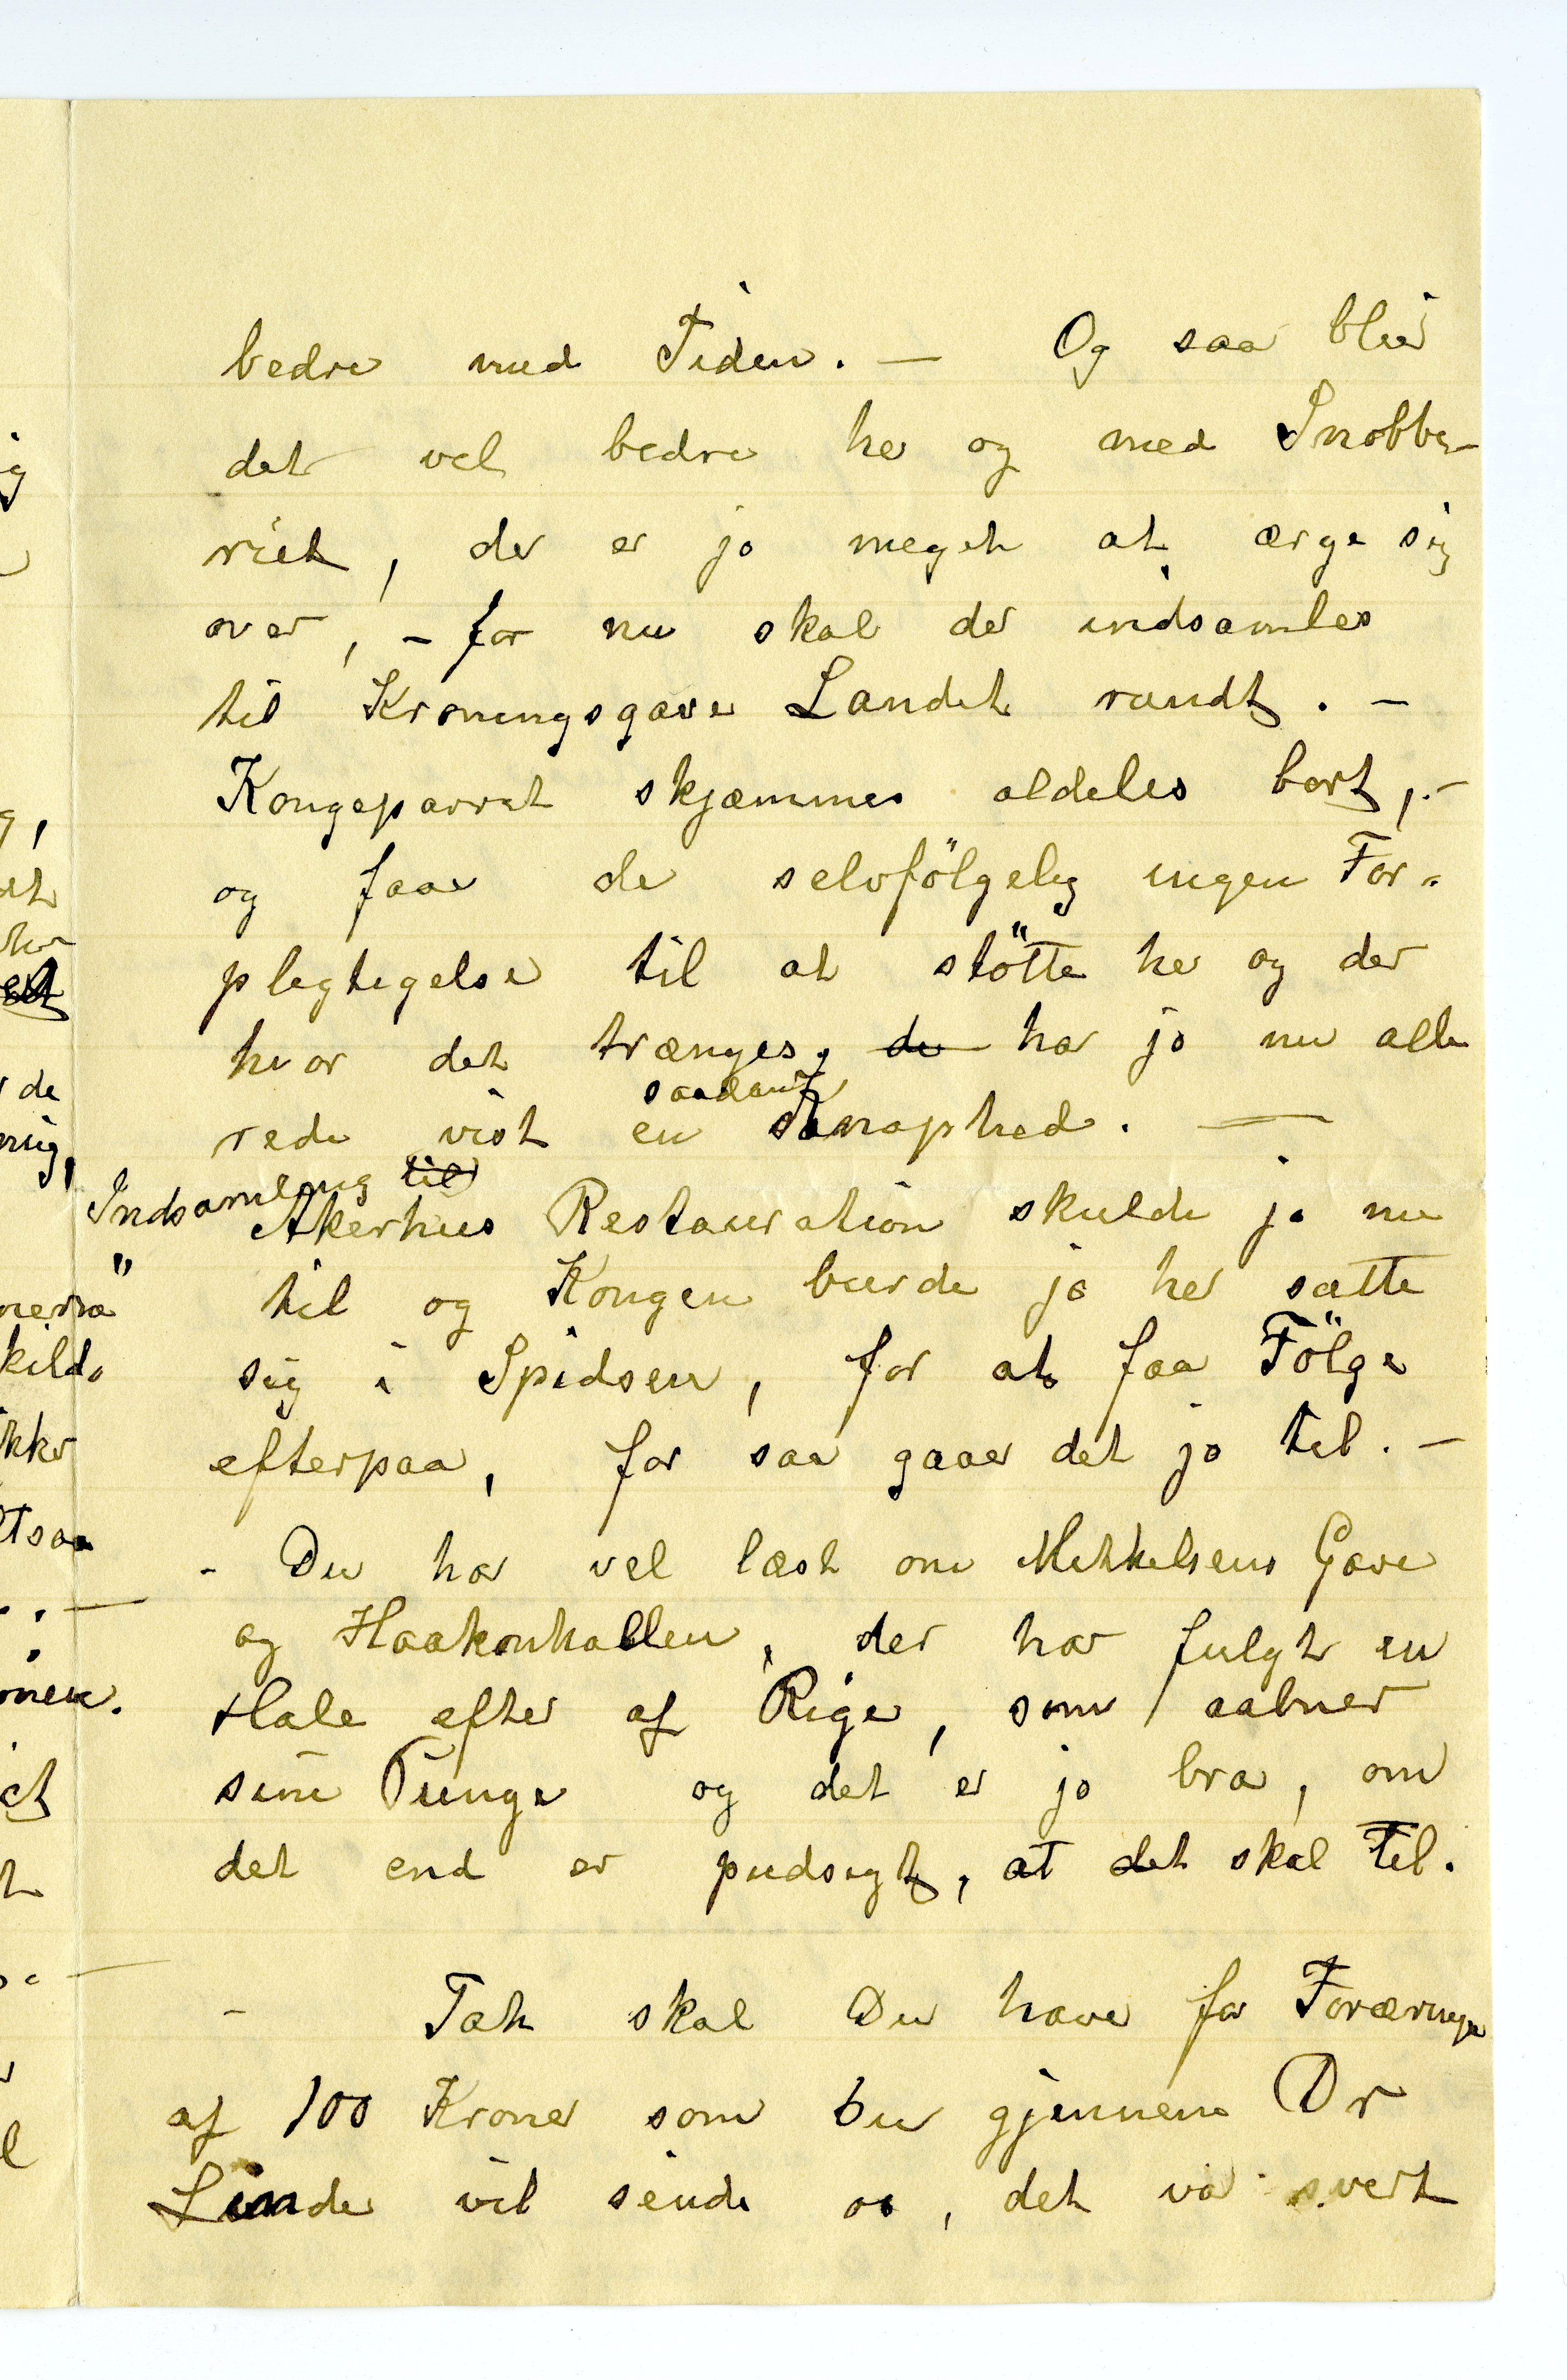 bedre med Tiden. — Og saa blir
det vel bedre her og med Snobbe-
riet, der er jo meget at ærge sig
over, – for nu skal der indsamles
til Kroningsgave Landet rundt. –
Kongeparret skjæmmes aldeles bort, –
og faar de selvfölgelig ingen For-
plegtigelse til at stötte her og der
hvor det trænges, de har jo nu alle
rede vist en saadant knaphed. —
Indsamlingig til
Akerhus Restauration skulde jo nu
til og Kongen burde jo her sætte
sig i Spidsen, for at faa Fölge
efterpaa, for saa gaaer det jo til. –
- Du har vel læst om Mikkelsens Gave
og Haakonhallen, der har fulgt en
Hale efter af Rige, som aabner
sine Punge og det er jo bra, om
det end er pudsigt, at det skal til.
– Tak skal Du have for Foræringen
af 100 Kroner som Du gjennem Dr
Linde vil sende os, det var svert
ig
g,
et
de
mig,
kild.
ikke
tsaa
onen.
et
t
l